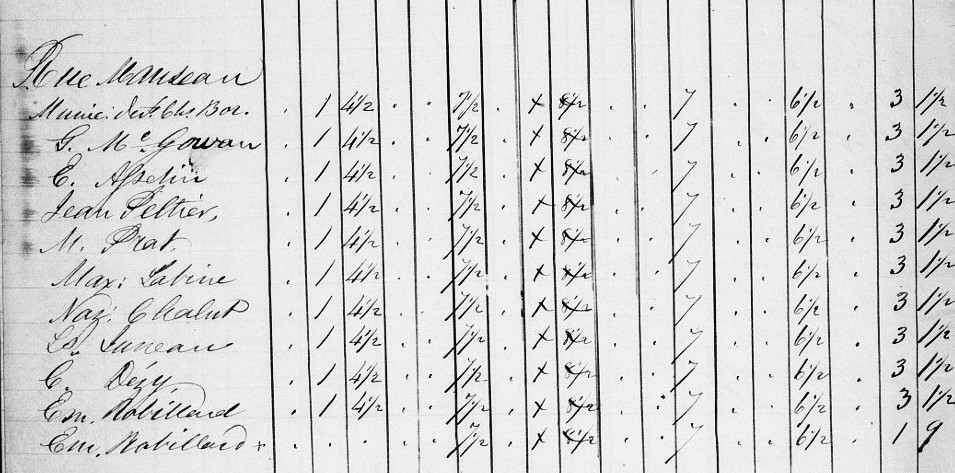 Rue Manseau
Munic. de Ch. Bor. . 1 4½ . . 7½ . x 8½ . . 7 . . 6½ . 3 1½
G. Mc Gowan . 1 4½ . . 7½ . x 8½ . . 7 . . 6½ . 3 1½
E. Asselin . 1 4½ . . 7½ . x 8½ . . 7 . . 6½ . 3 1½
Jean Peltier, . 1 4½ . . 7½ . x 8½ . . 7 . . 6½ . 3 1½
M. Prat. . 1 4½ . . 7½ . x 8½ . . 7 . . 6½ . 3 1½
Max: Labine . 1 4½ . . 7½ . x 8½ . . 7 . . 6½ . 3 1½
Naz: Chalut . 1 4½ . . 7½ . x 8½ . . 7 . . 6½ . 3 1½
Juneau . 1 4½ . . 7½ . x 8½ . . 7 . . 6½ . 3 1½
C. Dézy . 1 4½ . . 7½ . x 8½ . . 7 . . 6½ . 3 1½
Em. Robillard . 1 4½ . . 7½ . x 8½ . . 7 . . 6½ . 3 1½
Em. Robillard x . . . . . 7½ . x 8½ . . 7 . . 6½ . 1 9